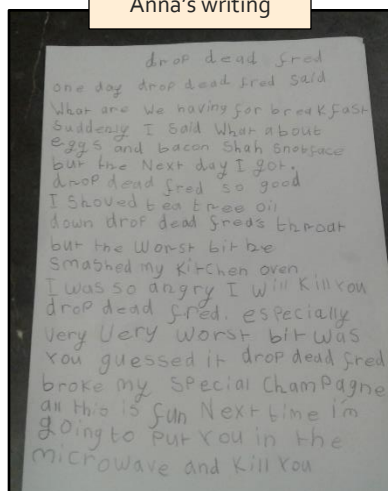 Anna's writing
drop dead fred
one day drop dead fred said
What are We having for breakfast
Suddenly I said What about
eggs and bacon Shah Snotface
but the Next day I got.
drop dead fred so good
I Shoved tea tree oil
down drop dead freds throat
but the Worst bit he
Smashed my Kitchen oven
I was so angry I will Kill You
drop dead fred. especially
Very Very worst bit was
You guessed it drop dead fred
broke my Special Champagne
all this is fun Next time i'm
going to Put You in the
microwave and Kill You